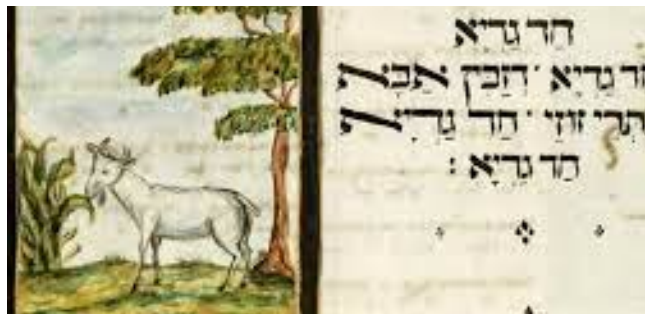 חַד גַדְיָא
חַד גַדְיָא · דְזַבִּן אַבָּא
בִּתְרֵי זוּזֵי · חַד גַדְיָא
חַד גַדְיָא :